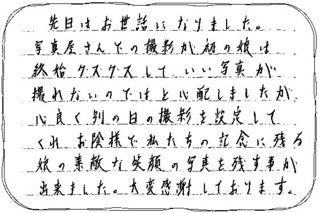 先日はお世話になりました。
写真屋さんでの撮影が初の娘は
終始グスグスして、いい写真が
撮れないのではと心配しましたが
心良く別の日の撮影を設定して
くれ、お陰様で私たちの記念に残る
娘の素敵な笑顔の写真を残す事が
出来ました。大変感謝しております。